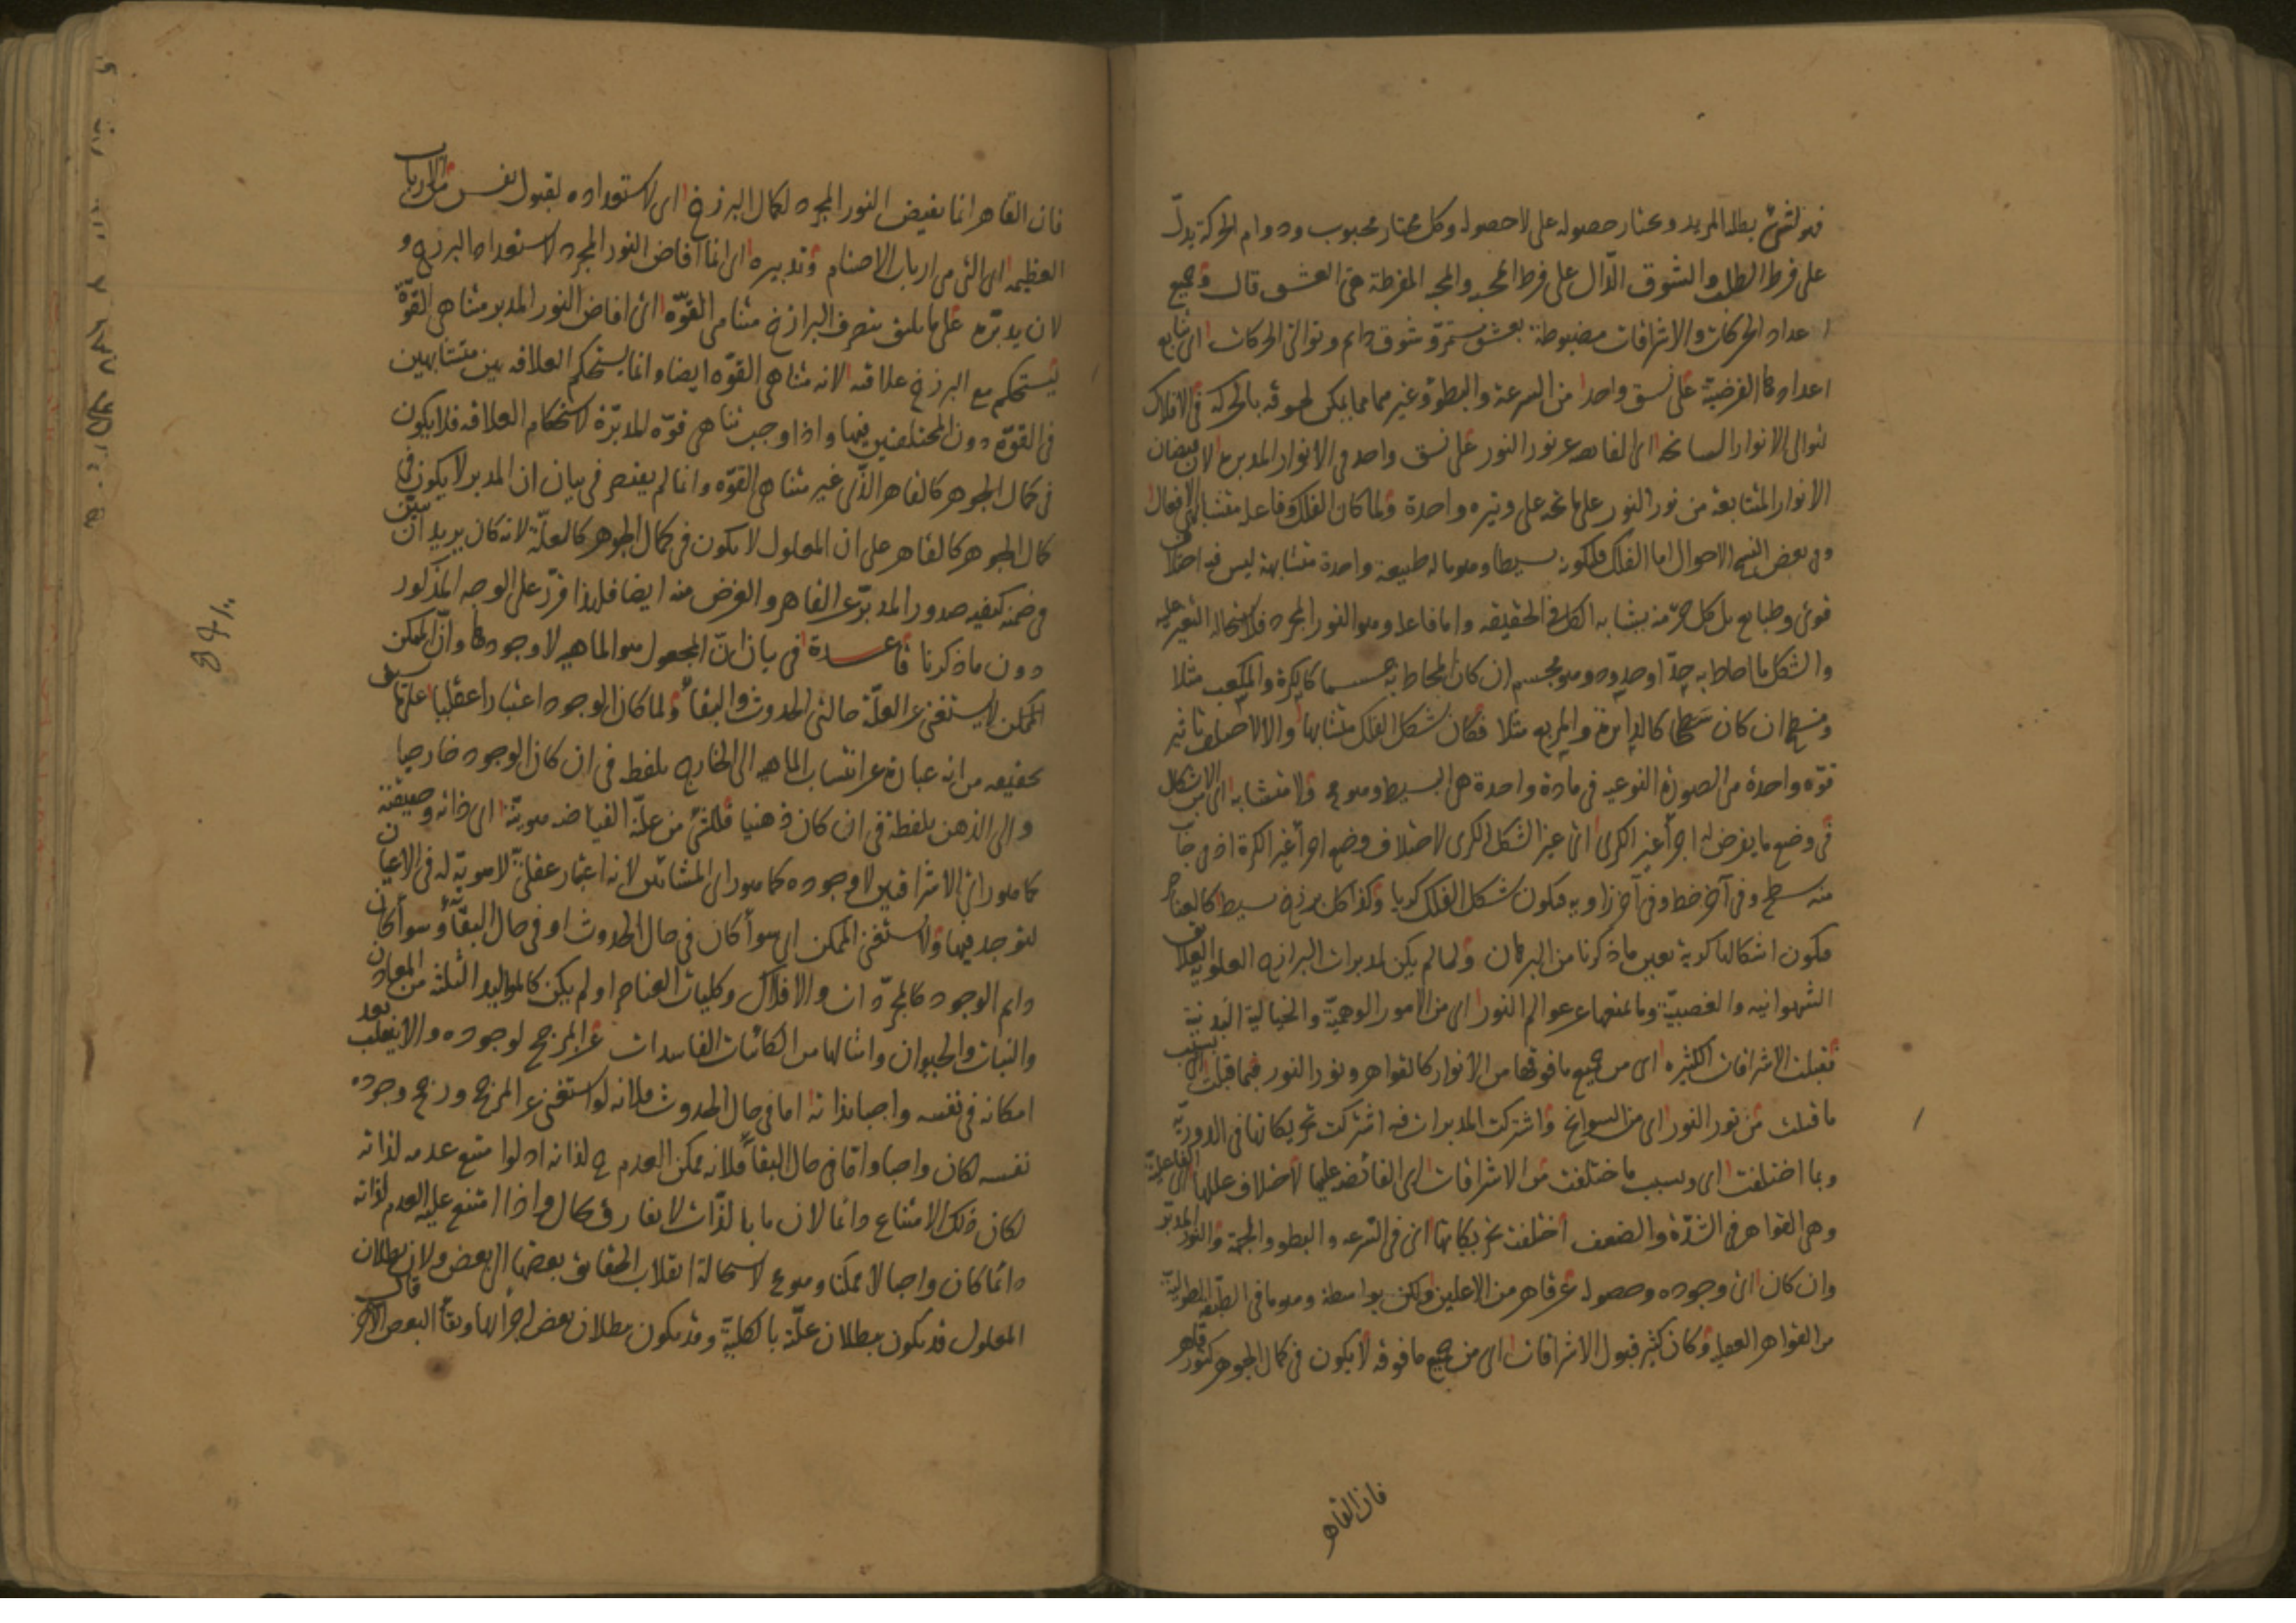 فهو لشئ يطلبه المريد ويختار حصوله على لاحصوله وكل مختار محبوب ودوام الحركة يدلّ
على فرط الطلب والشوق الدّال على فرط المحبه والمحبه المفرطة هى العشق قال وجميع
اعداد الحركات والاشراقات مضبوطة بعشق مستمرّ وشوق دايم وتوالى الحركات اى تتابع
اعدادها الفرضيّة على نسق واحد من السرعة والبطوء وغيرهما مما يمكن لحوقه بالحركه فى الافلاك
لتوالى الانوار السانحه اى الفايضه عن نور النور على نسق واحد فى الانوار المدبره لان فيضان
الانوار المتتابعة من نور النور على وتيره واحدة ولما كان الفلك وفاعله متشابهى الافعال
وفى بعض النسخ الاحوال اما الفلك فلكونه بسيطا وهو ما له طبيعة واحدة متشابهة ليس فيه اختلاف
قوى وطبايع بل كل جزء منه يشابه الكل فى الحقيقه واما فاعله وهو النور المجرد فلاستحاله التغير عليه
والشكل ما احاط به حدّ او حدود وهو مجسم ان كان المحاط به جسما كالكرة والمكعب مثلا
ومسطح ان كان سطحا كالدايرة والمربع مثلا فكان شكل الفلك متشابها والا لاختلف تاثير
قوّه واحدة من الصورة النوعيه فى مادة واحدة هى البسيط وهو مح ولا متشابه اى من الاشكال
فى وضع ما يفرض له اجزأ غير الكرى اى غير الشكل الكرى لاختلاف وضع اجزأ غير الكرة اذ فى جانب
منه سطح وفى آخر خط وفى آخر زاويه فيكون شكل الفلك كريا وكذا كل برزخ بسيط كالعناصر
فيكون اشكالها كرية بعين ما ذكرنا من البرهان ولما لم يكن لمدبرات البرازخ العلويه العلايق
الشهوانيه والغضبيّة وما يمنعها عن عوالم النور اى من الامور الوهميّة والخيالية البدنية
فقبلت الاشراقات الكثيره اى من جميع ما فوقها من الانوار كالقواهر ونور النور فبما قبلت اى بسبب
ما قبلت من نور النور اى من السوانح واشتركت المدبرات فيه اشتركت تحريكاتها فى الدوريّه
وبما اختلفت اى وبسبب ما اختلفت من الاشراقات اى الفائضه عليها لاختلاف عللها اى الفاعليّة
وهى القواهر فى الشدّة والضعف اختلفت تحريكاتها اى فى السرعه والبطوء والجهة والنور المدبّر
وان كان اى وجوده وحصوله عن قاهر من الاعلين ولكن بواسطة وهو ما فى الطبقه الطوليّة
من القواهر العقليه وكان كثير قبول الاشراقات اى من جميع ما فوقه لا يكون فى كمال الجوهر كنور قاهر
فان القاهر
فان القاهر انما يفيض النور المجرد لكمال البرزخ اى لاستعداده لقبول نفس من الارباب
العظيمه اى التى هى ارباب الاصنام وتدبيره اى انما افاض النور المجرد لاستعداد البرزخ و
لان يدبّره على ما يليق بتصرف البرازخ متناهى القوّه اى افاض النور المدبر متناهى القوّة
ليستحكم مع البرزخ علاقته لانه متناهى القوّه ايضا وانما يستحكم العلاقه بين متشابهين
فى القوّة دون المختلفين فيها واذا وجب تناهى قوّه المدبّرة لاستحكام العلاقه فلا يكون
فى كمال الجوهر كالقاهر الذّى غير متناهى القوّه وانما لم يقتصر فى بيان ان المدبر لا يكون فى
كمال الجوهر كالقاهر على ان المعلول لا يكون فى كمال الجوهر كالعلّة لانه كان يريد ان يبيّن
فى ضمنه كيفيه صدور المدبّر عن القاهر والغرض منه ايضا فلهذا قرّر على الوجه المذكور
دون ما ذكرنا قاعدة فى بيان انّ المجعول هو الماهيه لا وجودها وانّ الممكن
الممكن لا يستغنى عن العلّة حالتى الحدوث والبقأ ولما كان الوجود اعتبارا عقليا على ما سبق
تحقيقه من انه عبارة عن انتساب الماهيه الى الخارج بلفظ فى ان كان الوجود خارجيا
والى الذهن بلفظة فى ان كان ذهنيا فللشئ من علّته الفياضه هويّته اى ذاته وحقيقته
كما هو راى الاشراقيين لا وجوده كما هو راى المشائين لانه اعتبار عقلىّ لا هويّة له فى الاعيان
لتوجد فيها ولا يستغنى الممكن اى سوأ كان فى حال الحدوث او فى حال البقأ وسوأ كان
دايم الوجود كالمجرّدات والافلاك وكليات العناصر او لم يكن كالمواليد الثلثة من المعادن
والنبات والحيوان وامثالها من الكائنات الفاسدات عن المرجح لوجوده والا ينقلب بعد
امكانه فى نفسه واجبا بذاته اما فى حال الحدوث فلانه لو استغنى عن المرجح ورجح وجوده
نفسه لكان واجبا واما فى حال البقأ فلانه ممكن العدم ح لذاته اذ لو امتنع عدمه لذاته
لكان ذلك الامتناع دائما لان ما بالذّات لا يفارق بحال واذا امتنع عليه العدم لذاته
دائما كان واجبا لا ممكنا وهو مح لاستحالة انقلاب الحقايق بعضها الى بعض ولان بطلان قال
المعلول قد يكون ببطلان علّته بالكليّة وقد يكون ببطلان بعض اجزأئها وبقأ البعض الآخر